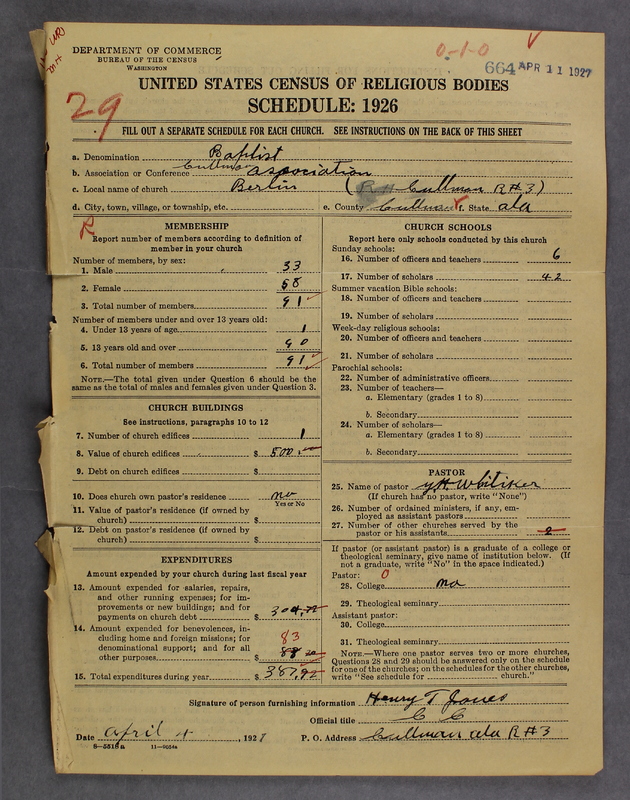 DEPARTMENT OF COMMERCE
BUREAU OF THE CENSUS
WASHINGTON
0-1-0
664 APR 11 1927
UNITED STATES CENSUS OF RELIGIOUS BODIES
SCHEDULE: 1926
29
FILL OUT A SEPARATE SCHEDULE FOR EACH CHURCH. SEE INSTRUCTIONS ON THE BACK OF THIS SHEET
a. Denomination Baptist
b. Association or Conference Cullman association
c. Local name of church Berlin (R H Cullman R#3)
d. City, town, village, or township, etc.
e. County Cullman f. State ala
R
MEMBERSHIP
Report number of members according to definition of
member in your church
Number of members, by sex:
1. Male 33
2. Female 58
3. Total number of members 91
Number of members under and over 13 years old:
4. Under 13 years of age 1
5. 13 years old and over 90
6. Total number of members 91
NOTE.—The total given under Question 6 should be the
same as the total of males and females given under Question 3.
CHURCH BUILDINGS
See instructions, paragraphs 10 to 12
7. Number of church edifices 1
8. Value of church edifices $ 500.00
9. Debt on church edifices $
10. Does church own pastor's residence no
Yes or No
11. Value of pastor's residence (if owned by
church) $
12. Debt on pastor's residence (if owned by
church) $
EXPENDITURES
Amount expended by your church during last fiscal year
13. Amount expended for salaries, repairs,
and other running expenses; for im-
provements or new buildings; and for
payments on church debt $ 304.72
14. Amount expended for benevolences, in-
cluding home and foreign missions; for
denominational support; and for all
other purposes $ 83 88 20
15. Total expenditures during year $ 387.92
CHURCH SCHOOLS
Report here only schools conducted by this church
Sunday schools:
16. Number of officers and teachers 6
17. Number of scholars 42
Summer vacation Bible schools:
18. Number of officers and teachers
19. Number of scholars
Week-day religious schools:
20. Number of officers and teachers
21. Number of scholars
Parochial schools:
22. Number of administrative officers
23. Number of teachers—
a. Elementary (grades 1 to 8)
b. Secondary
24. Number of scholars—
a. Elementary (grades 1 to 8)
b. Secondary
PASTOR
25. Name of pastor Whitiker
(If church has no pastor, write "None")
26. Number of ordained ministers, if any, em-
ployed as assistant pastors
27. Number of other churches served by the
pastor or his assistants 2
If pastor (or assistant pastor) is a graduate of a college or
theological seminary, give name of institution below. (If
not a graduate, write "No" in the space indicated.)
Pastor: 0
28. College no
29. Theological seminary
Assistant pastor:
30. College
31. Theological seminary
NOTE.—Where one pastor serves two or more churches,
Questions 28 and 29 should be answered only on the schedule
for one of the churches; on the schedules for the other churches,
write "See schedule for church."
Signature of person furnishing information Henry T Jones
Official title C C
Date april 4, 1927
P. O. Address Cullman ala R#3
8-5518a 11-9054a